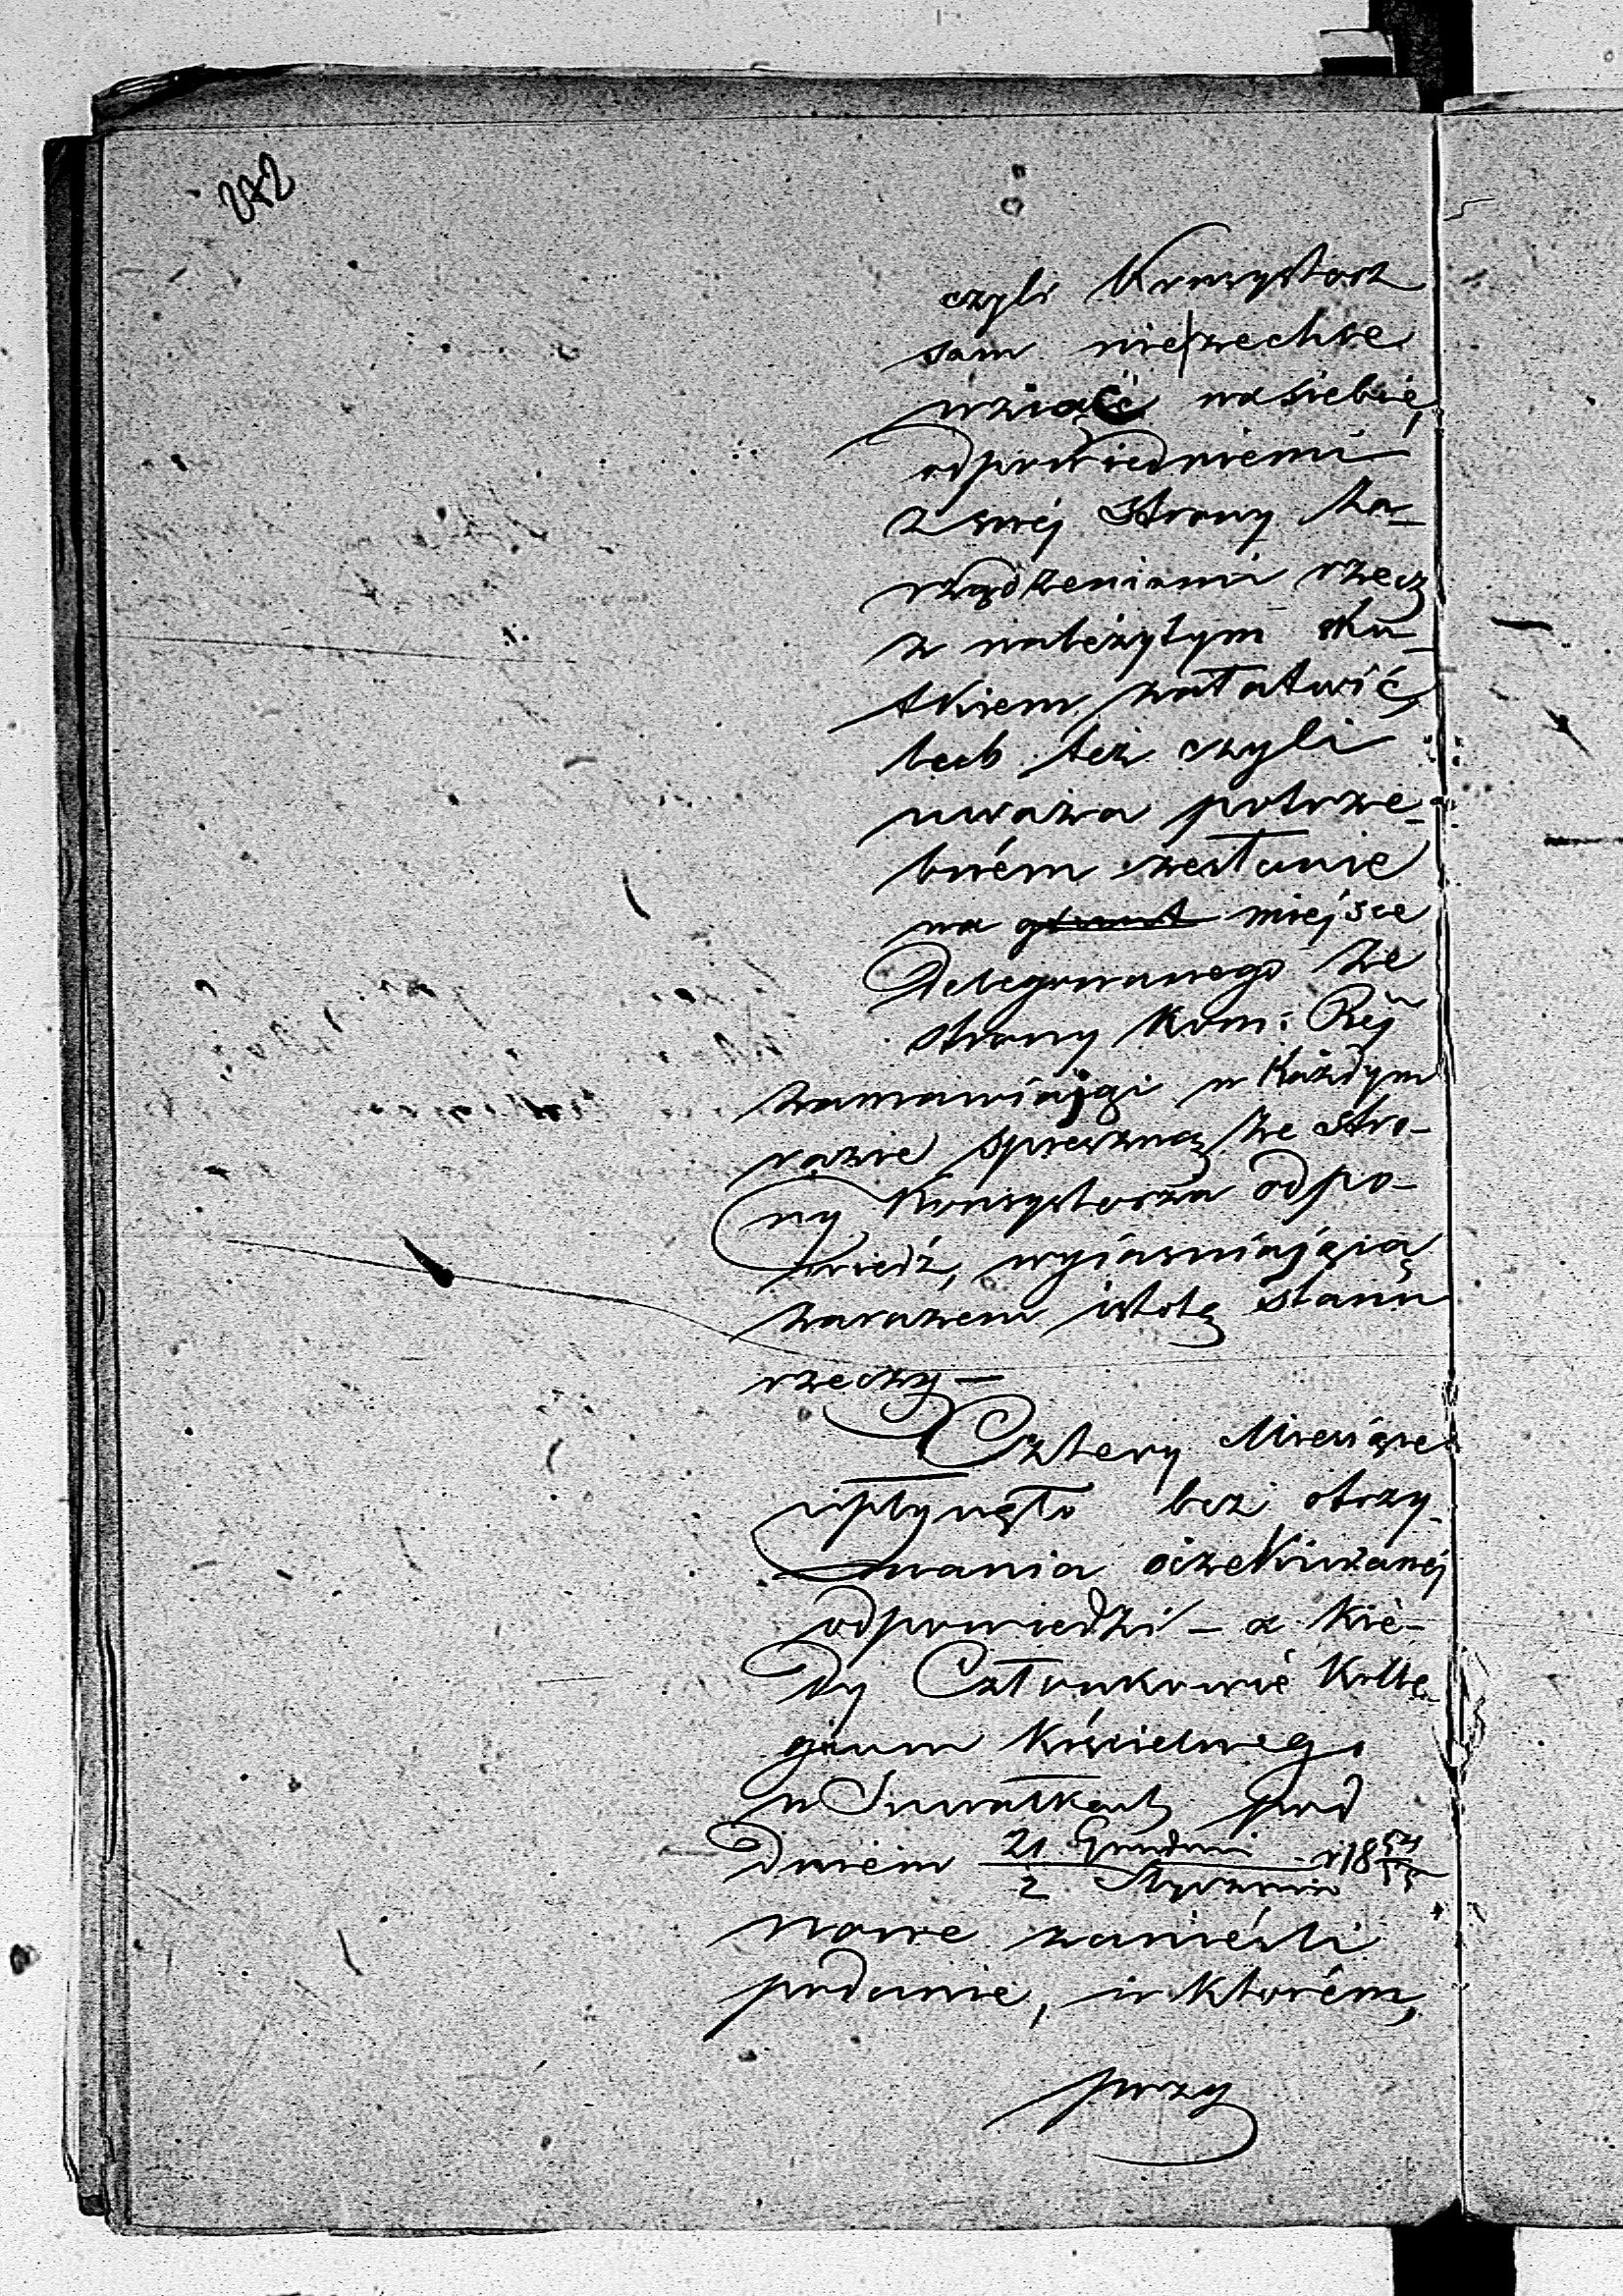 242
czyli Konsystorz
sam nie zechce
wziąść na siebie,
odpowiedniemi
z swéj strony za-
rządzeniami rzecz
z należytym sku-
tkiem załatwić,
lub też czyli
uważa potrze-
bném zesłanie
na grunt miejsce
Delegowanego ze
strony Kom: Rej
zamawiając w każdym
razie spieszną ze stro-
ny Konsystorza odpo-
wiedź, wyjaśniającą
zarazem istotę stanu
rzeczy —
Cztery Miesiące
upłynęło bez otrzy-
mania oczekiwanéj
odpowiedzi — a kie-
dy Członkowie Kolle-
gium Kościelnego
w Suwałkach pod
Dniem 21 Grudnia / 2 Stycznia r 18 54/55
nowe zanieśli
podanie, w którém,
przy